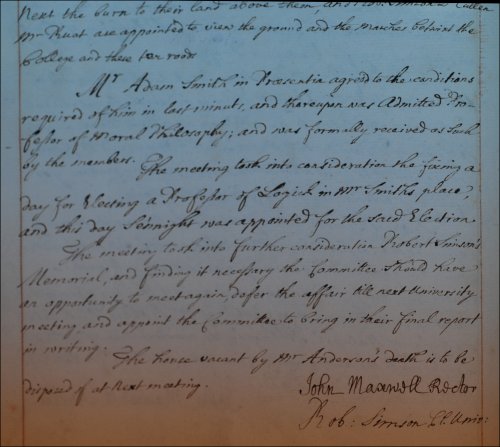 next the burn to their land above them, and Drs. Cullen
Mr Ruat are appointed to view the ground and the marches betwixt the
College and these two roods
Mr Adam Smith in Præsentia agreed to the conditions
required of him in last minuts, and thereupon was Admitted Pro-
fessor of Moral Philosophy; and was formally received as such
by the members.
The meeting took into consideration the fixing a
day for Electing a Professor of Logick in Mr Smiths place;
and this day Sehnight was appointed for the said Election
The meeting took into further consideration Robert Simson's
Memorial, and finding it necessary the Committee should have
an opportunity to meet again, defer the affair till next University
meeting and appoint the Committee to bring in their final report
in writing.
The house vacant by Mr Anderson's death is to be
disposed of at next meeting.
John Maxwell Rector
Rob: Simson Cl. Univ: